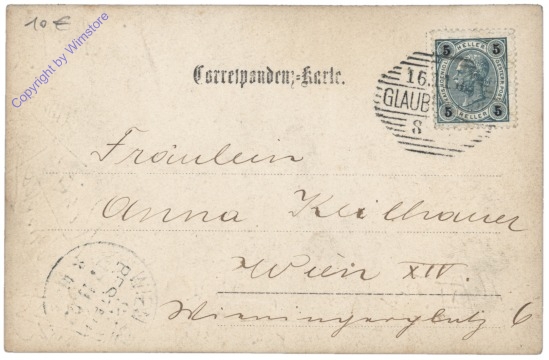 10 €
Copyright by Wimstore
Correspondenz-Karte.
5 HELLER 5
5 HELLER 5
16.
GLAUB
8
Fräulein
Anna Keilhauer
Wien XIV.
Wieningerplatz 6
WIEN